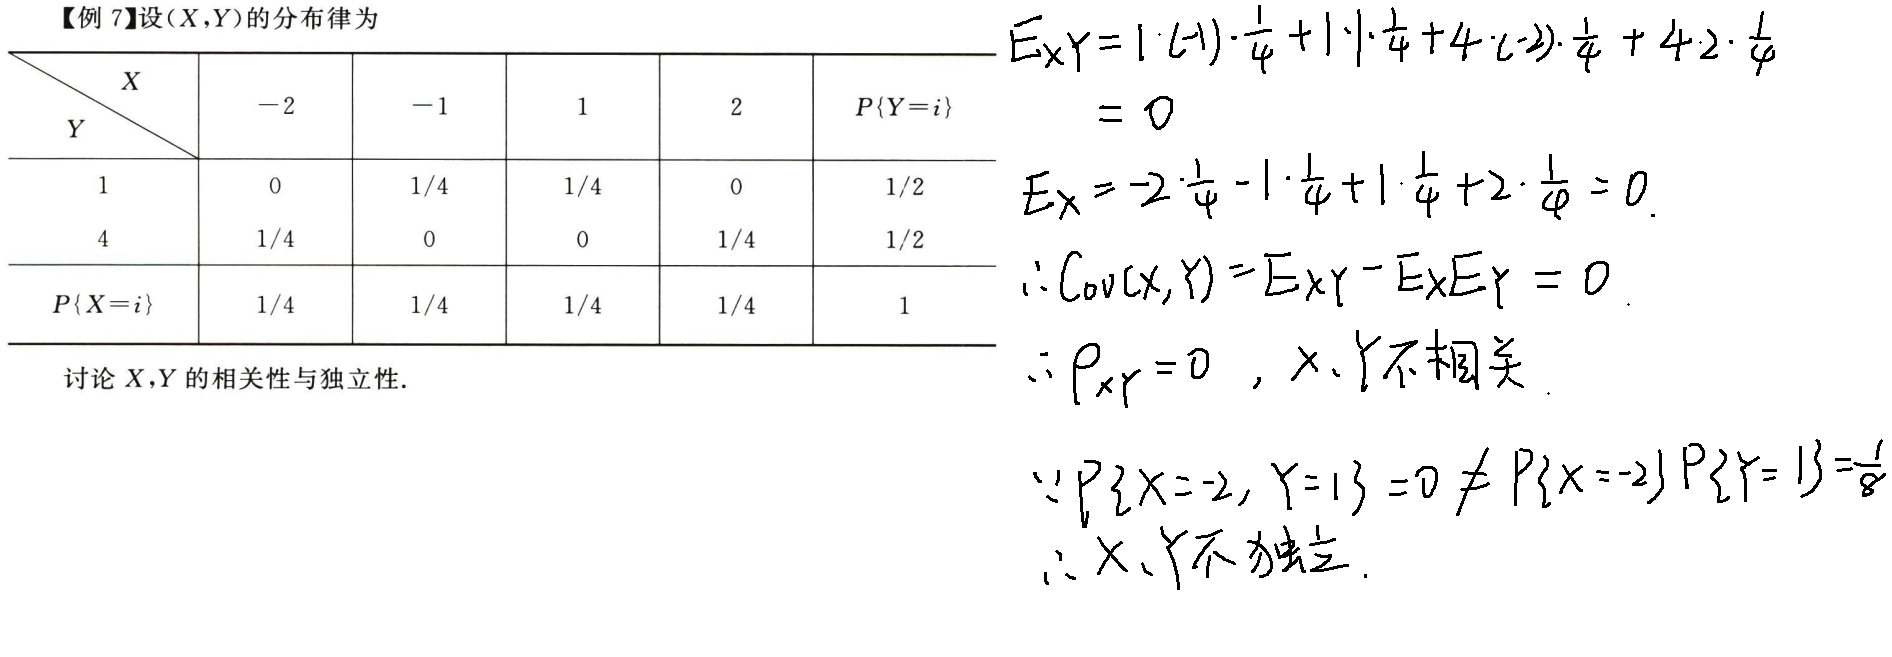 【例 7】设(X,Y)的分布律为
X
Y
−2 −1 1 2 P{Y=i}
1 0 1/4 1/4 0 1/2
4 1/4 0 0 1/4 1/2
P{X=i} 1/4 1/4 1/4 1/4 1
讨论 X,Y 的相关性与独立性.
EXY=1·(-1)·1/4+1·1·1/4+4·(-2)·1/4+4·2·1/4
=0
EX=-2·1/4-1·1/4+1·1/4+2·1/4=0.
∴Cov(X,Y)=EXY-EXEY=0.
∴ρXY=0,X、Y不相关.
∵P{X=-2,Y=1}=0≠P{X=-2}P{Y=1}=1/8
∴X、Y不独立.